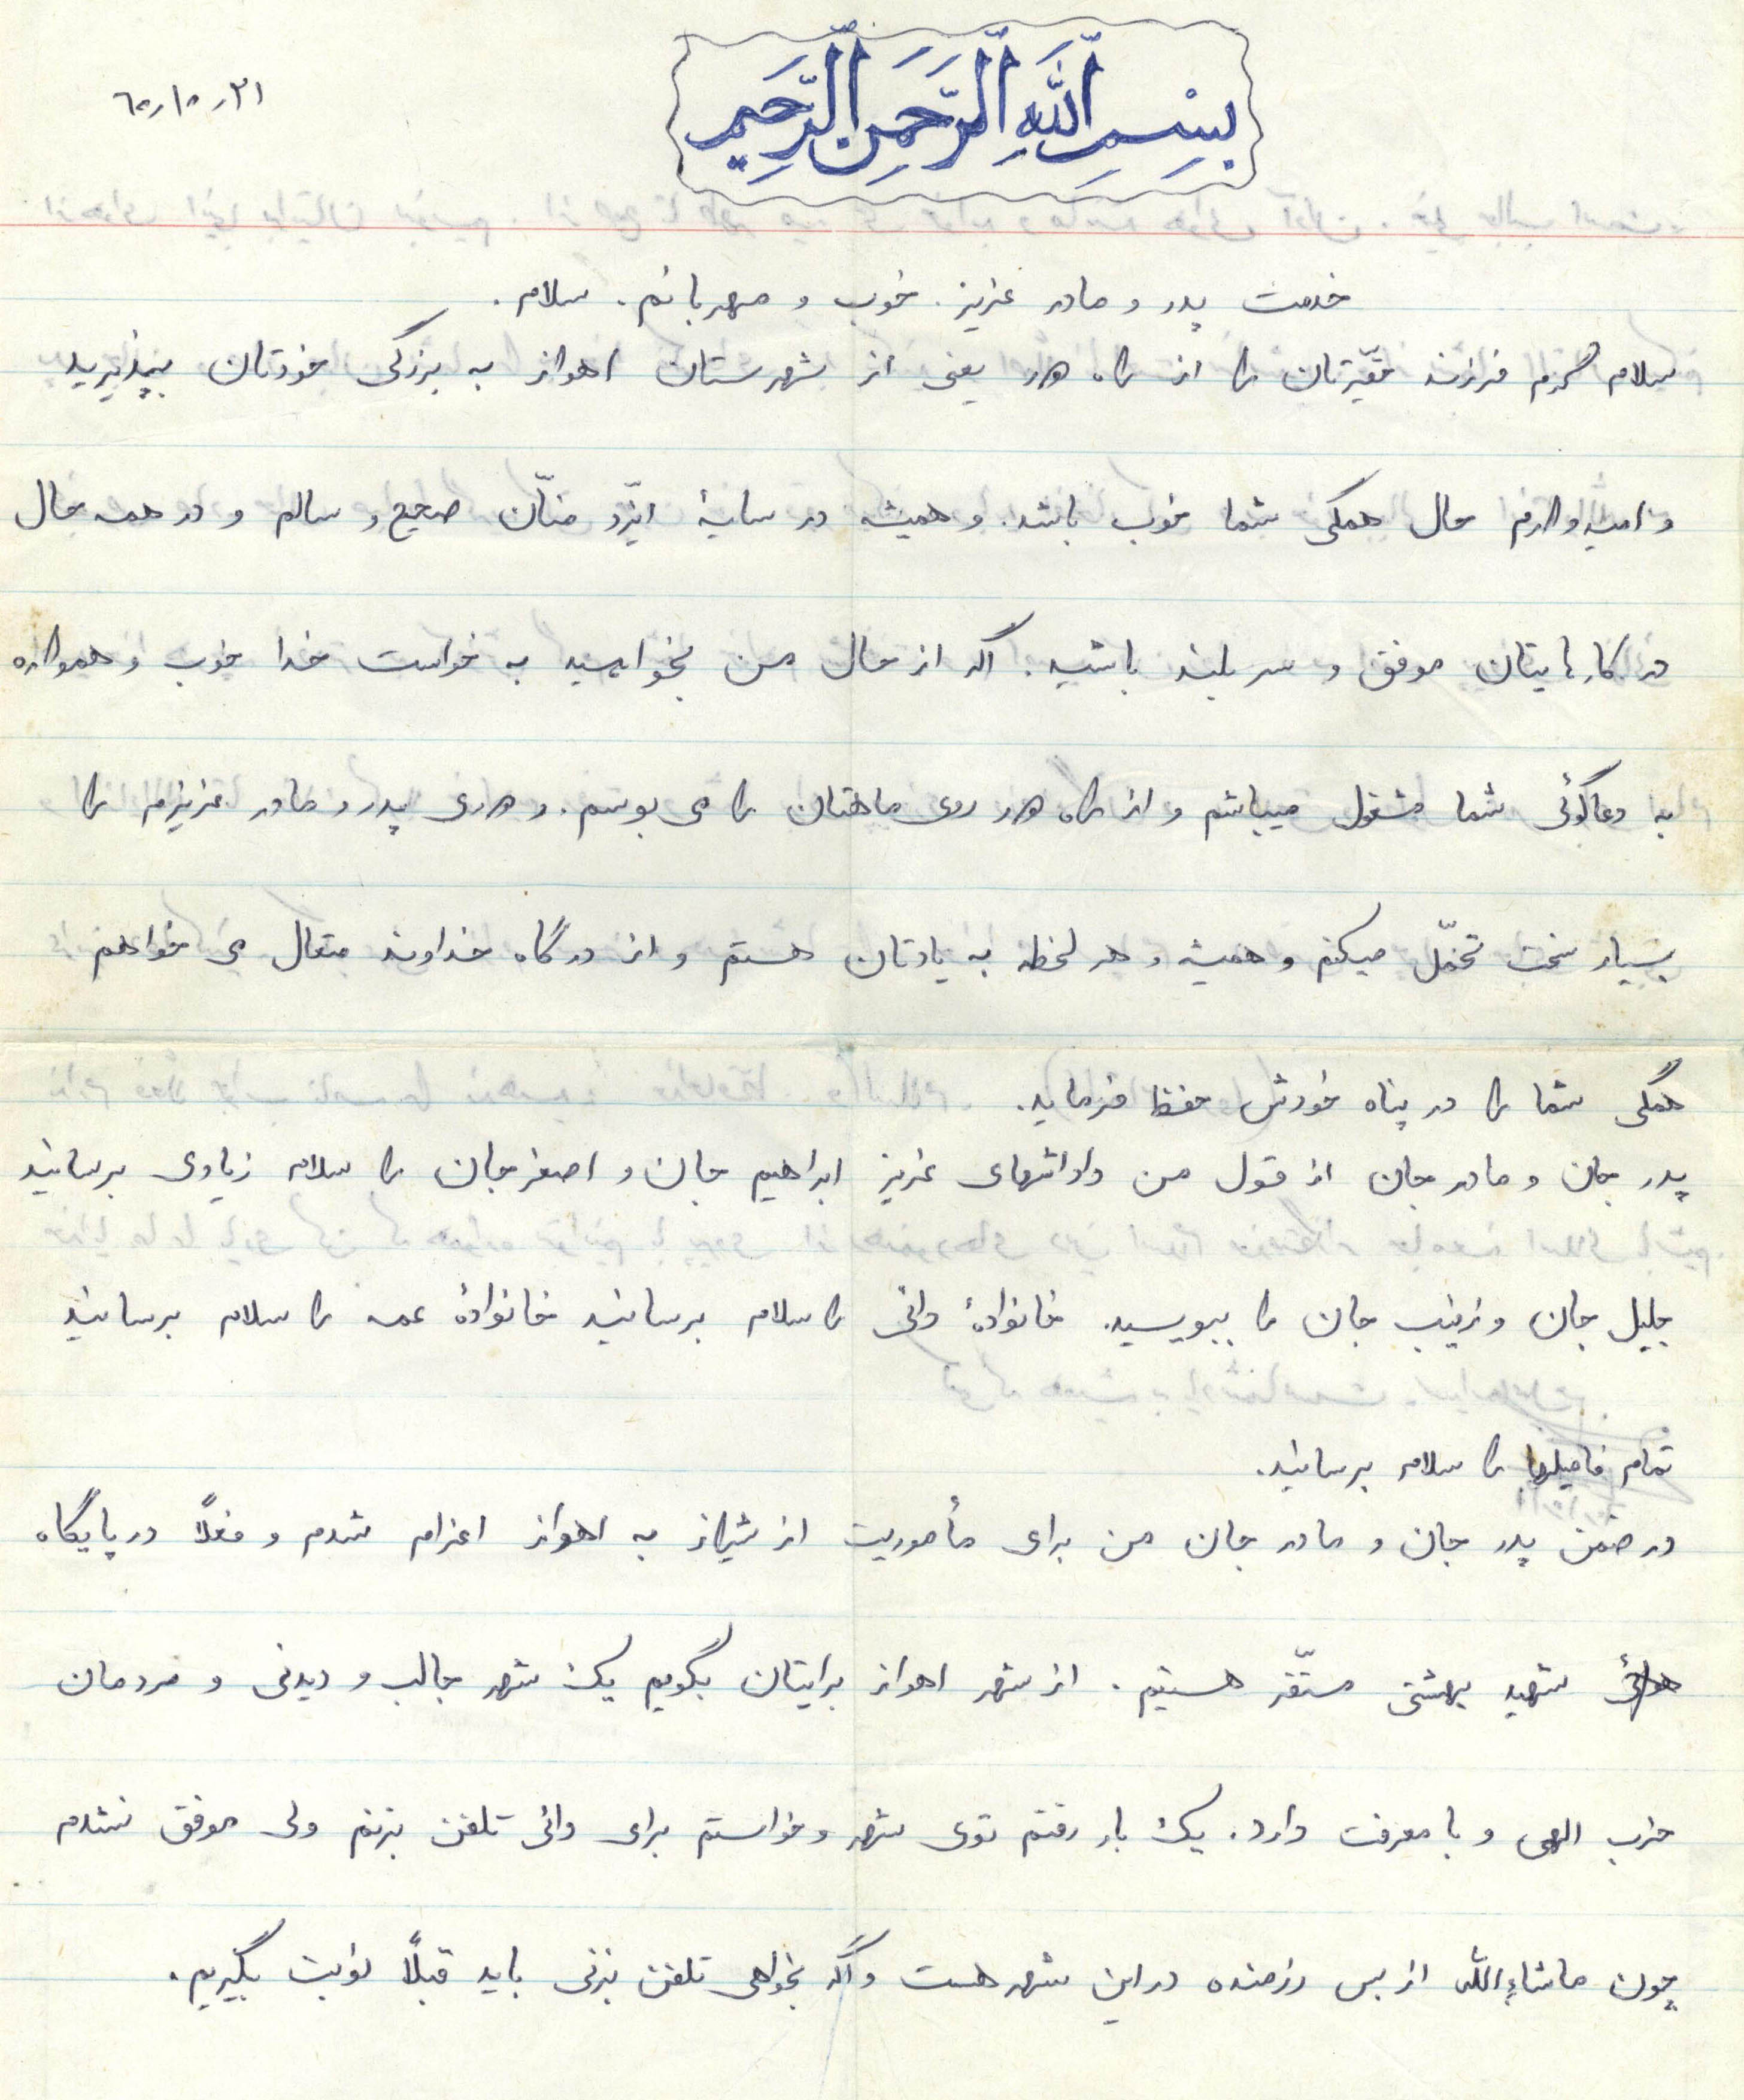 بِسْمِ اللَّهِ الرَّحْمَنِ الرَّحِيمِ
۶۵/۱۰/۲۱
خدمت پدر و مادر عزیز. خوب و مهربانم. سلام.
سلام گرم فرزند حقیرتان را از راه دور یعنی از شهرستان اهواز به بزرگی خودتان بپذیرید
و امیدوارم حال همگی شما خوب باشد. و همیشه در سایهٔ ایزد منّان صحیح و سالم و در همه حال
در کارهایتان موفق و سربلند باشید. اگر از حال من بخواهید به خواست خدا خوب و همواره
به دعاگوئی شما مشغول میباشم و از راه دور روی ماهتان را می بوسم. و دوری پدر و مادر عزیزم را
بسیار سخت تحمّل میکنم و همیشه و هر لحظه به یادتان هستم و از درگاه خداوند متعال می خواهم
همگی شما را در پناه خودش حفظ فرماید.
پدر جان و مادر جان از قول من داداشهای عزیز ابراهیم جان و اصغر جان را سلام زیادی برسانید
جلیل جان و زینب جان را ببوسید. خانوادهٔ دائی را سلام برسانید خانوادهٔ عمه را سلام برسانید
تمام فامیلها را سلام برسانید.
در ضمن پدر جان و مادر جان من برای مأموریت از شیراز به اهواز اعزام شدم و فعلاً در پایگاه
شهید بهشتی مستقّر هستیم. از شهر اهواز برایتان بگویم یک شهر جالب و دیدنی و مردمان
حزب الهی و با معرفت دارد. یک بار رفتم توی شهر و خواستم برای دائی تلفن بزنم ولی موفق نشدم
چون ماشاءالله از بس رزمنده در این شهر هست و اگر بخواهی تلفن بزنی باید قبلاً نوبت بگیریم.